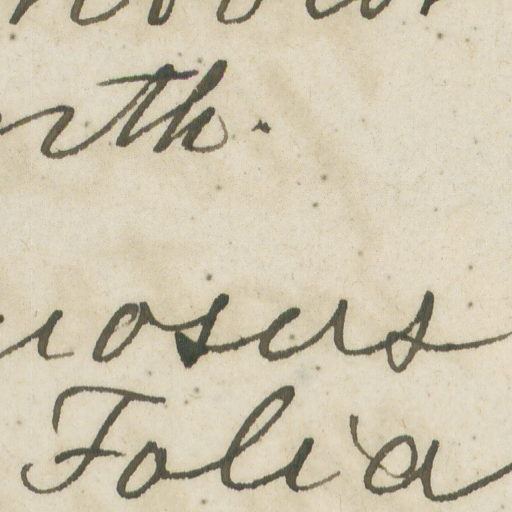 rth.
iosus
Folia